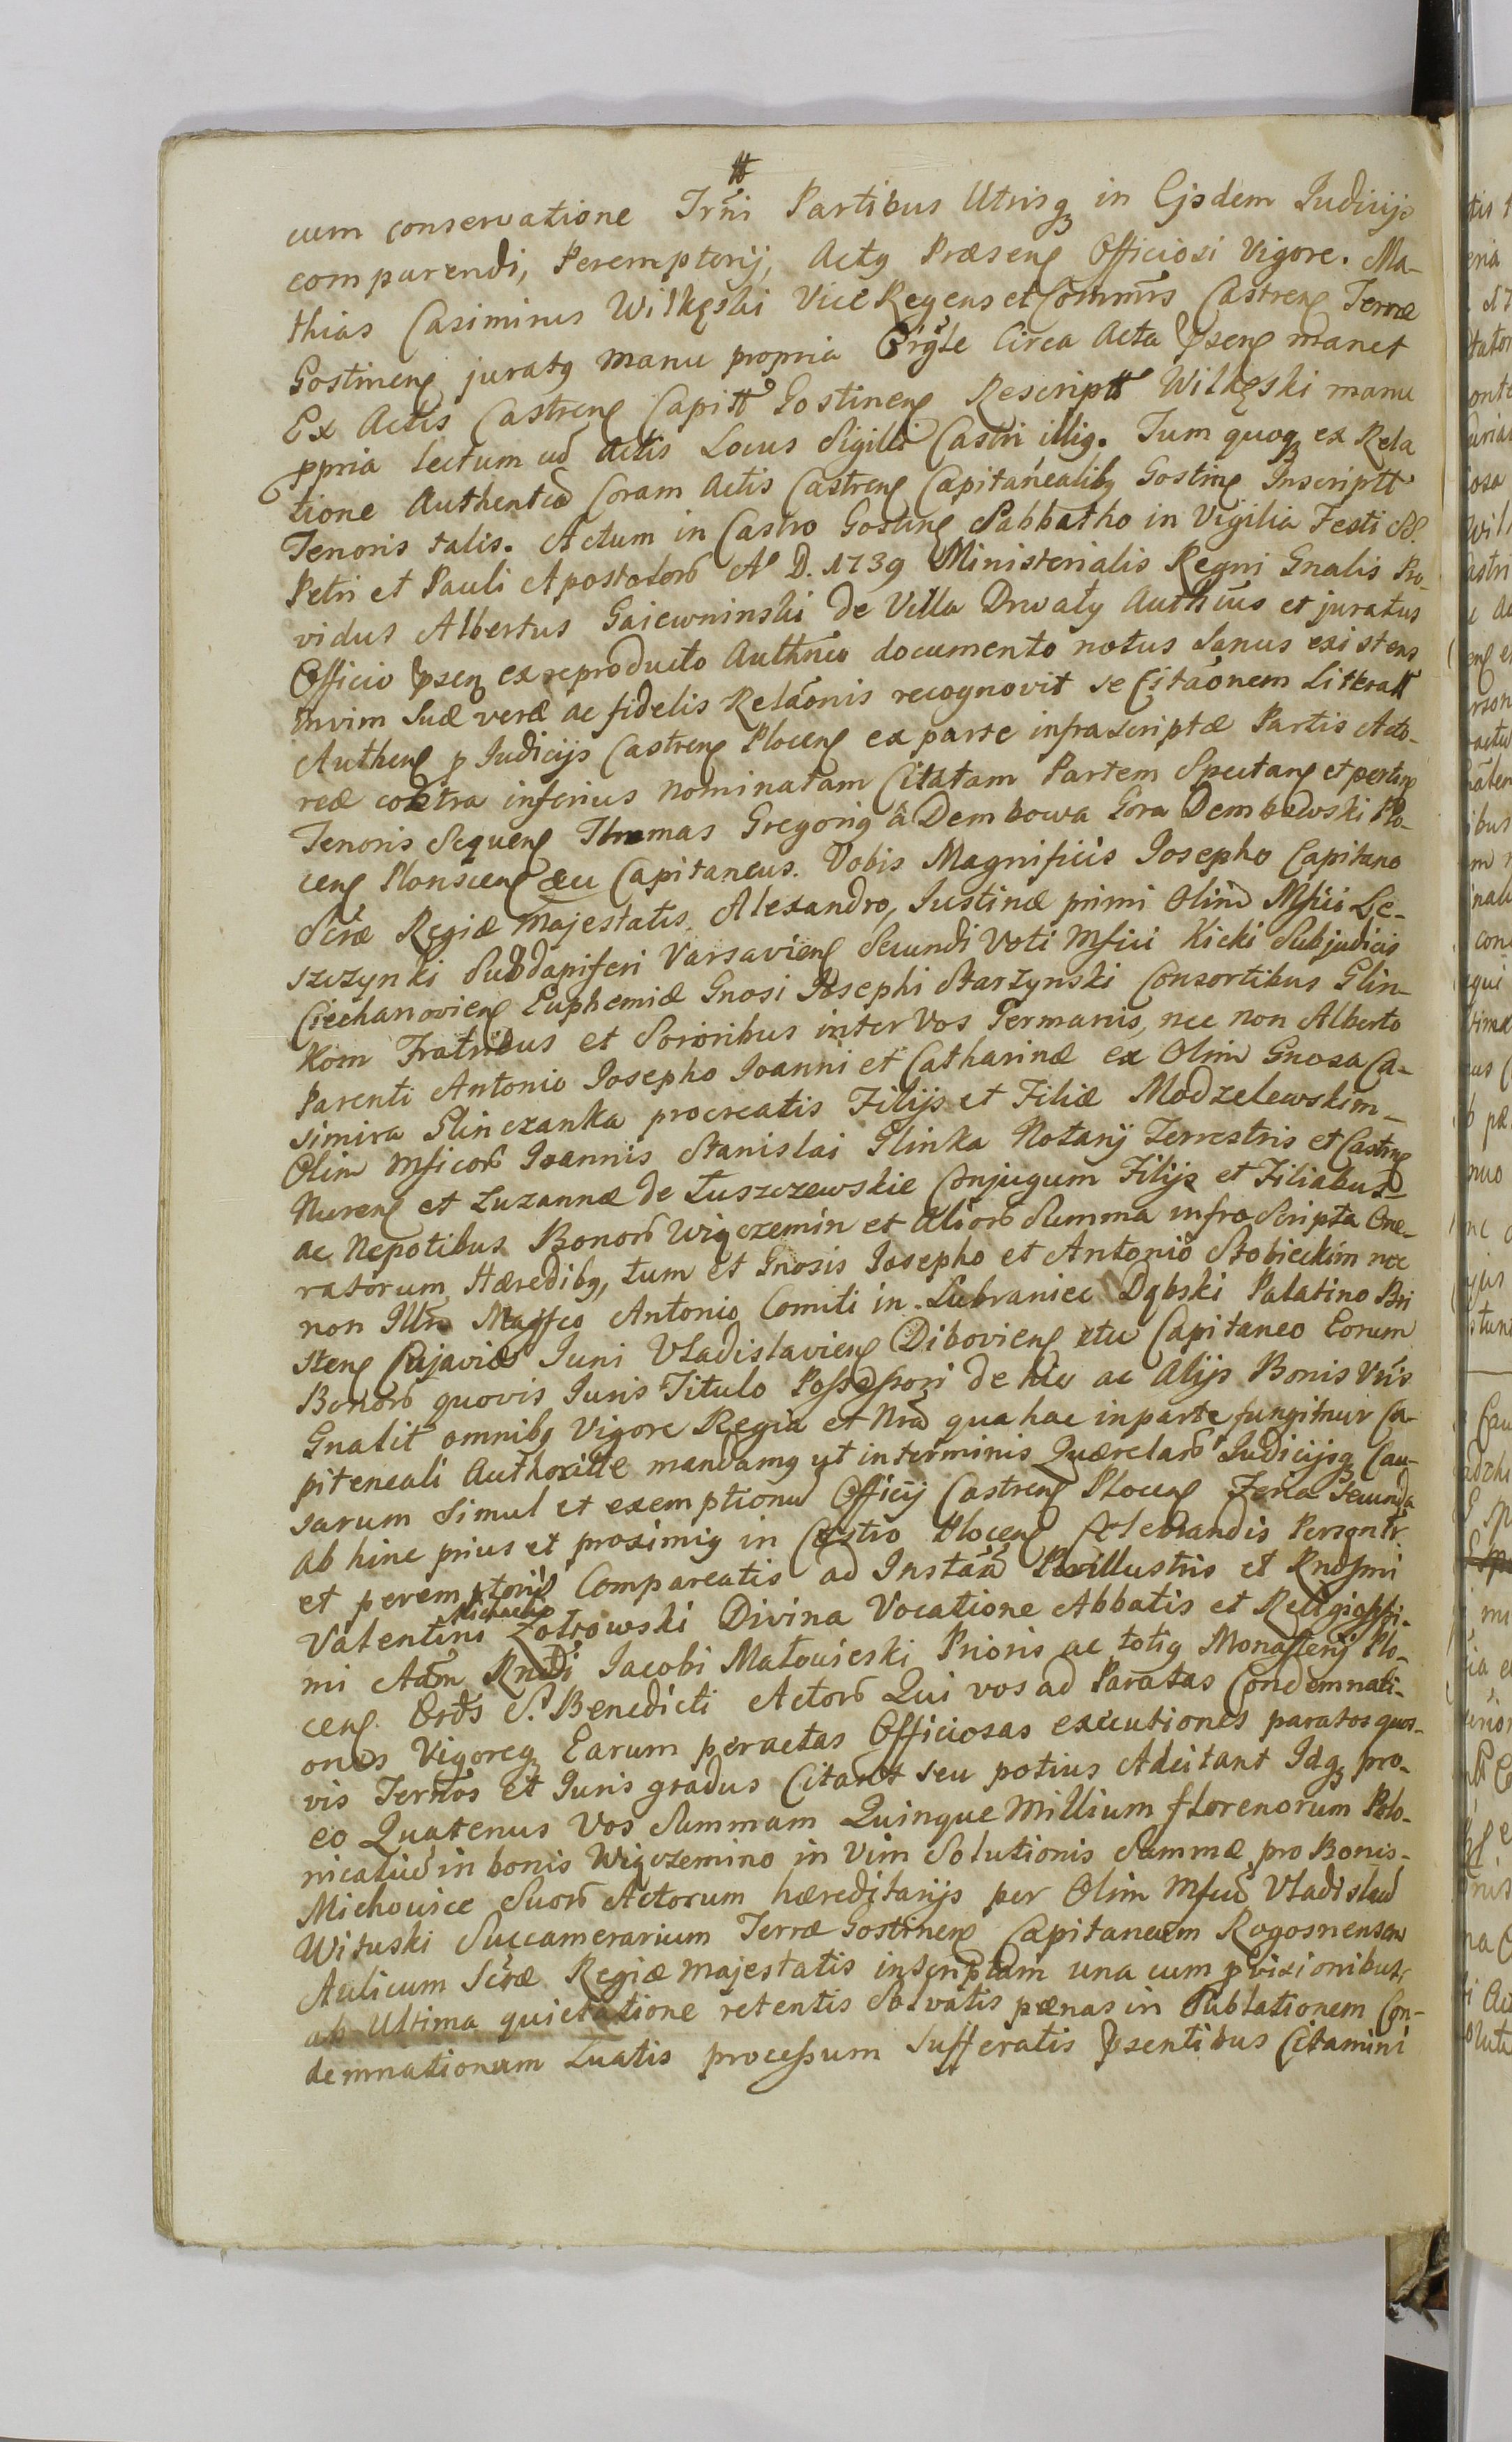 cum conservatione Trni Partibus Utrisqꝫ in Ejsdem Judicijs
comparendi, Peremptorij, Actꝯ Præsenꝭ Officiosi Vigore. Ma-
thias Casimirus Wilkęski Vice Regens et Commrs Castrenꝭ Terræ
Gostinenꝭ juratꝯ manu propria Origle Circa Acta Psenꝭ manet
Ex Actis Castrenꝭ Capitt Gostinenꝭ Rescriptt Wilkęski manu
ppria Lectum cū Actis Locus Sigilli Castri illiꝯ. Tum quoqꝫ ex Rela
tione Authentca Coram Actis Castrenꝭ Capitanealibꝯ Gostinꝭ Inscriptt
Tenoris talis. Actum in Castro Gostinꝭ Sabbatho in Vigilia Festi SS.
Petri et Pauli Apostolorō Aº D. 1739 Ministerialis Regni Gnalis Pro-
vidus Albertus Gaiewninski de Villa Drwały Authcus et juratus
Officio Psenꝭ ex reproducto Authnco documento notus Sanus existens
Invim Suæ veræ ac fidelis Relaonis recognovit se Citaonem Literatt
Authenꝭ p Judicijs Castrenꝭ Plocenꝭ ex parte infrascriptæ Partis Acto-
reæ contra inferius nominatam Citatam Partem Spectanꝭ et pertinꝭ
Tenoris Sequenꝭ Thomas Gregoriꝯ â Dembowa Gora Dembowski Plo-
cenꝭ Plonscenꝭ &cc Capitaneus. Vobis Magnificis Josepho Capitano
Scræ Regiæ Majestatis, Alexandro, Justinæ primi Olim Mfici Le-
szczynski Subdapiferi Varsavienꝭ Secundi Voti Mfici Kicki Subjudicis
Ciechanovienꝭ Euphemiæ Gnosi Josephi Starzynski Consortibus Glin-
kom Fratribus et Sororibus inter Vos Germanis, nec non Alberto
Parenti Antonio Josepho Joanni et Catharinæ ex Olim Gnosa Ca-
simira Glinczanka procreatis Filijs et Filiæ Modzelewskim-
Olim Mficorō Joannis Stanislai Glinka Notarij Terrestris et Castrenꝭ
Nurenꝭ et Zuzannæ de Łuszczewskie Conjugum Filijs et Filiabus
ac Nepotibus Bonorō Wiączemin et Aliorō Summa infra Scripta One-
ratorum Hæredibꝯ, tum et Gnosis Josepho et Antonio Stobieckim nec
non Illro Magfco Antonio Comiti in Lubraniec Dąbski Palatino Bri
stenꝭ Cujaviæ Juni Vladislavienꝭ Dibovienꝭ etcc Capitaneo Eorum
Bonorō quovis Juris Titulo Possessori de hic ac Alijs Bonis Vris
Gnalit omnibꝯ Vigore Regia et Nra qua hac inparte fungimur Ca-
piteneali Authoritte mandamꝯ ut interminis Quærelarō Judicijsqꝫ Cau-
sarum Simul et exemptionū Officij Castrenꝭ Plocenꝭ Feria Secunda
ab hinc prius et proximiꝯ in Castro Plocenꝭ Celebrandis Personltr
et peremptorie Compareatis ad Instaā Perillustris et Rndsmi
Michaelis
Valentini Zotrowski Divina Vocatione Abbatis et Religiossi-
mi Adm Rndi Jacobi Małowieski Prioris ac totiꝯ Monasterij Plo-
cenꝭ Ords S. Benedicti Actorō Qui vos ad Paratas Condemnati-
ones Vigoreqꝫ Earum peractas Officiosas executiones paratos quos-
vis Terños et Juris gradus Citant seu potius Adcitant Idqꝫ pro-
eo Quatenus Vos Summam Quinque Millium florenorum Polo-
nicaliū in bonis Wiączemino in Vim Solutionis Summæ pro Bonis-
Michowice Suorō Actorum hæreditarijs per Olim Mfcū Vladislaū
Wituski Succamerarium Terræ Gostinenꝭ Capitaneum Rogosnensem
Aulicum Scræ Regiæ Majestatis inscriptam una cum pvisionibus,
ab Ultima quietatione retentis Solvatis pænas in Sublationem Con-
demnationum Luatis processum Sufferatis Psentibus Citamini